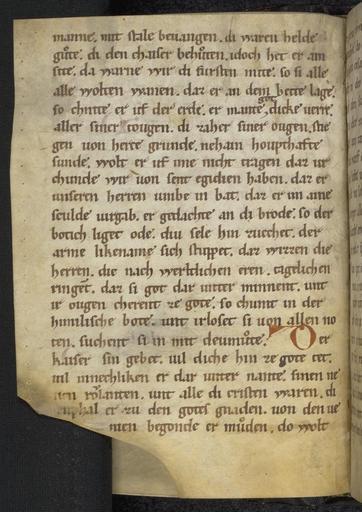 manne. mit stale beuangen. di waren helde
gůte. di den chaiser behůten. idoch het er am
site. da warne wir di fursten mite. so si alle
alle wolten wanen. daz er an dem bette lage.
so chnite er uf der erde. er mante got dicke uerre.
aller siner tougen. di zaher siner ougen. stie
gen uon herce grunde. nehain houpthafte
sunde. wolt er uf ime nicht tragen daz ur
chunde wir uon sent egidien haben. daz er
unseren herren umbe in bat. daz er im aine
sculde uirgab. er gedachte an di brode. so der
botich liget ode. diu sele hin zucchet. der
arme likename sich stuppet. daz wizzen die
herren. die nach werltlichen eren. tagelichen
ringent. daz si got dar unter minnent. unt
ir ougen cherent ze gote. so chumt in der
himilische bote. unt irloset si uon allen no
ten. suchent si in mit deumůte. Der
kaiser sin gebet. uil diche hin ze gote tet.
uil innechliken er dar unter nante. sinen ne
uen růlanten. unt alle di cristen waren. di
enphal er zu den gotes gnaden. uon den ue
nien begonde er můden. do wolt